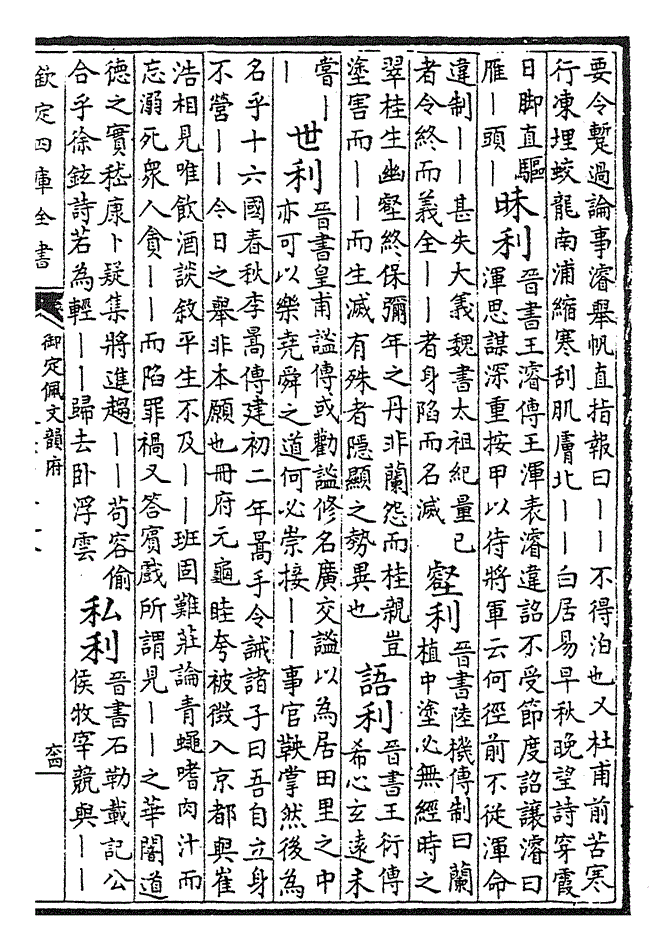 要令蹔過論事濬舉帆直指報曰――不得泊也又杜甫前苦寒
行凍埋蛟龍南浦縮寒刮肌膚北――白居易早秋晚望詩穿霞
日脚直驅
雁―頭―
昧利
晉書王濬傳王渾表濬違詔不受節度詔讓濬曰
渾思謀深重按甲以待將軍云何徑前不從渾命
違制――甚失大義魏書太祖紀量已
者令終而義全――者身陷而名滅
壑利
晉書陸機傳制曰蘭
植中塗必無經時之
翠桂生幽壑終保彌年之丹非蘭怨而桂親豈
塗害而――而生滅有殊者隱顯之勢異也
語利
晉書王衍傳
希心玄遠未
嘗―
―
世利
晉書皇甫謐傳或勸謐修名廣交謐以為居田里之中
亦可以樂堯舜之道何必崇接――事官鞅掌然後為
名乎十六國春秋李暠傳建初二年暠手令誡諸子曰吾自立身
不營――今日之舉非本願也冊府元龜眭夸被徵入京都與崔
浩相見唯飲酒談敘平生不及――班固難莊論青蠅嗜肉汁而
忘溺死衆人貪――而陷罪禍又答賓戲所謂見――之華闇道
德之實嵇康卜疑集將進趨――苟容偷
合乎徐鉉詩若為輕――歸去卧浮雲
私利
晉書石勒載記公
侯牧宰競與――
欽定四庫全書
御定佩文韻府
六四